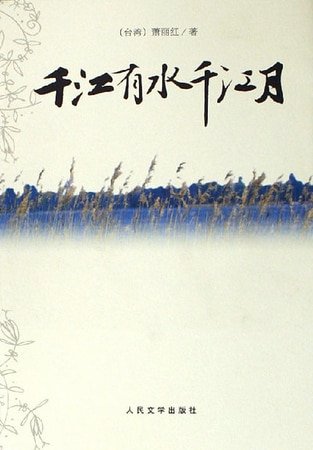 （台湾）萧丽红／著
千江有水千江月
人民文学出版社